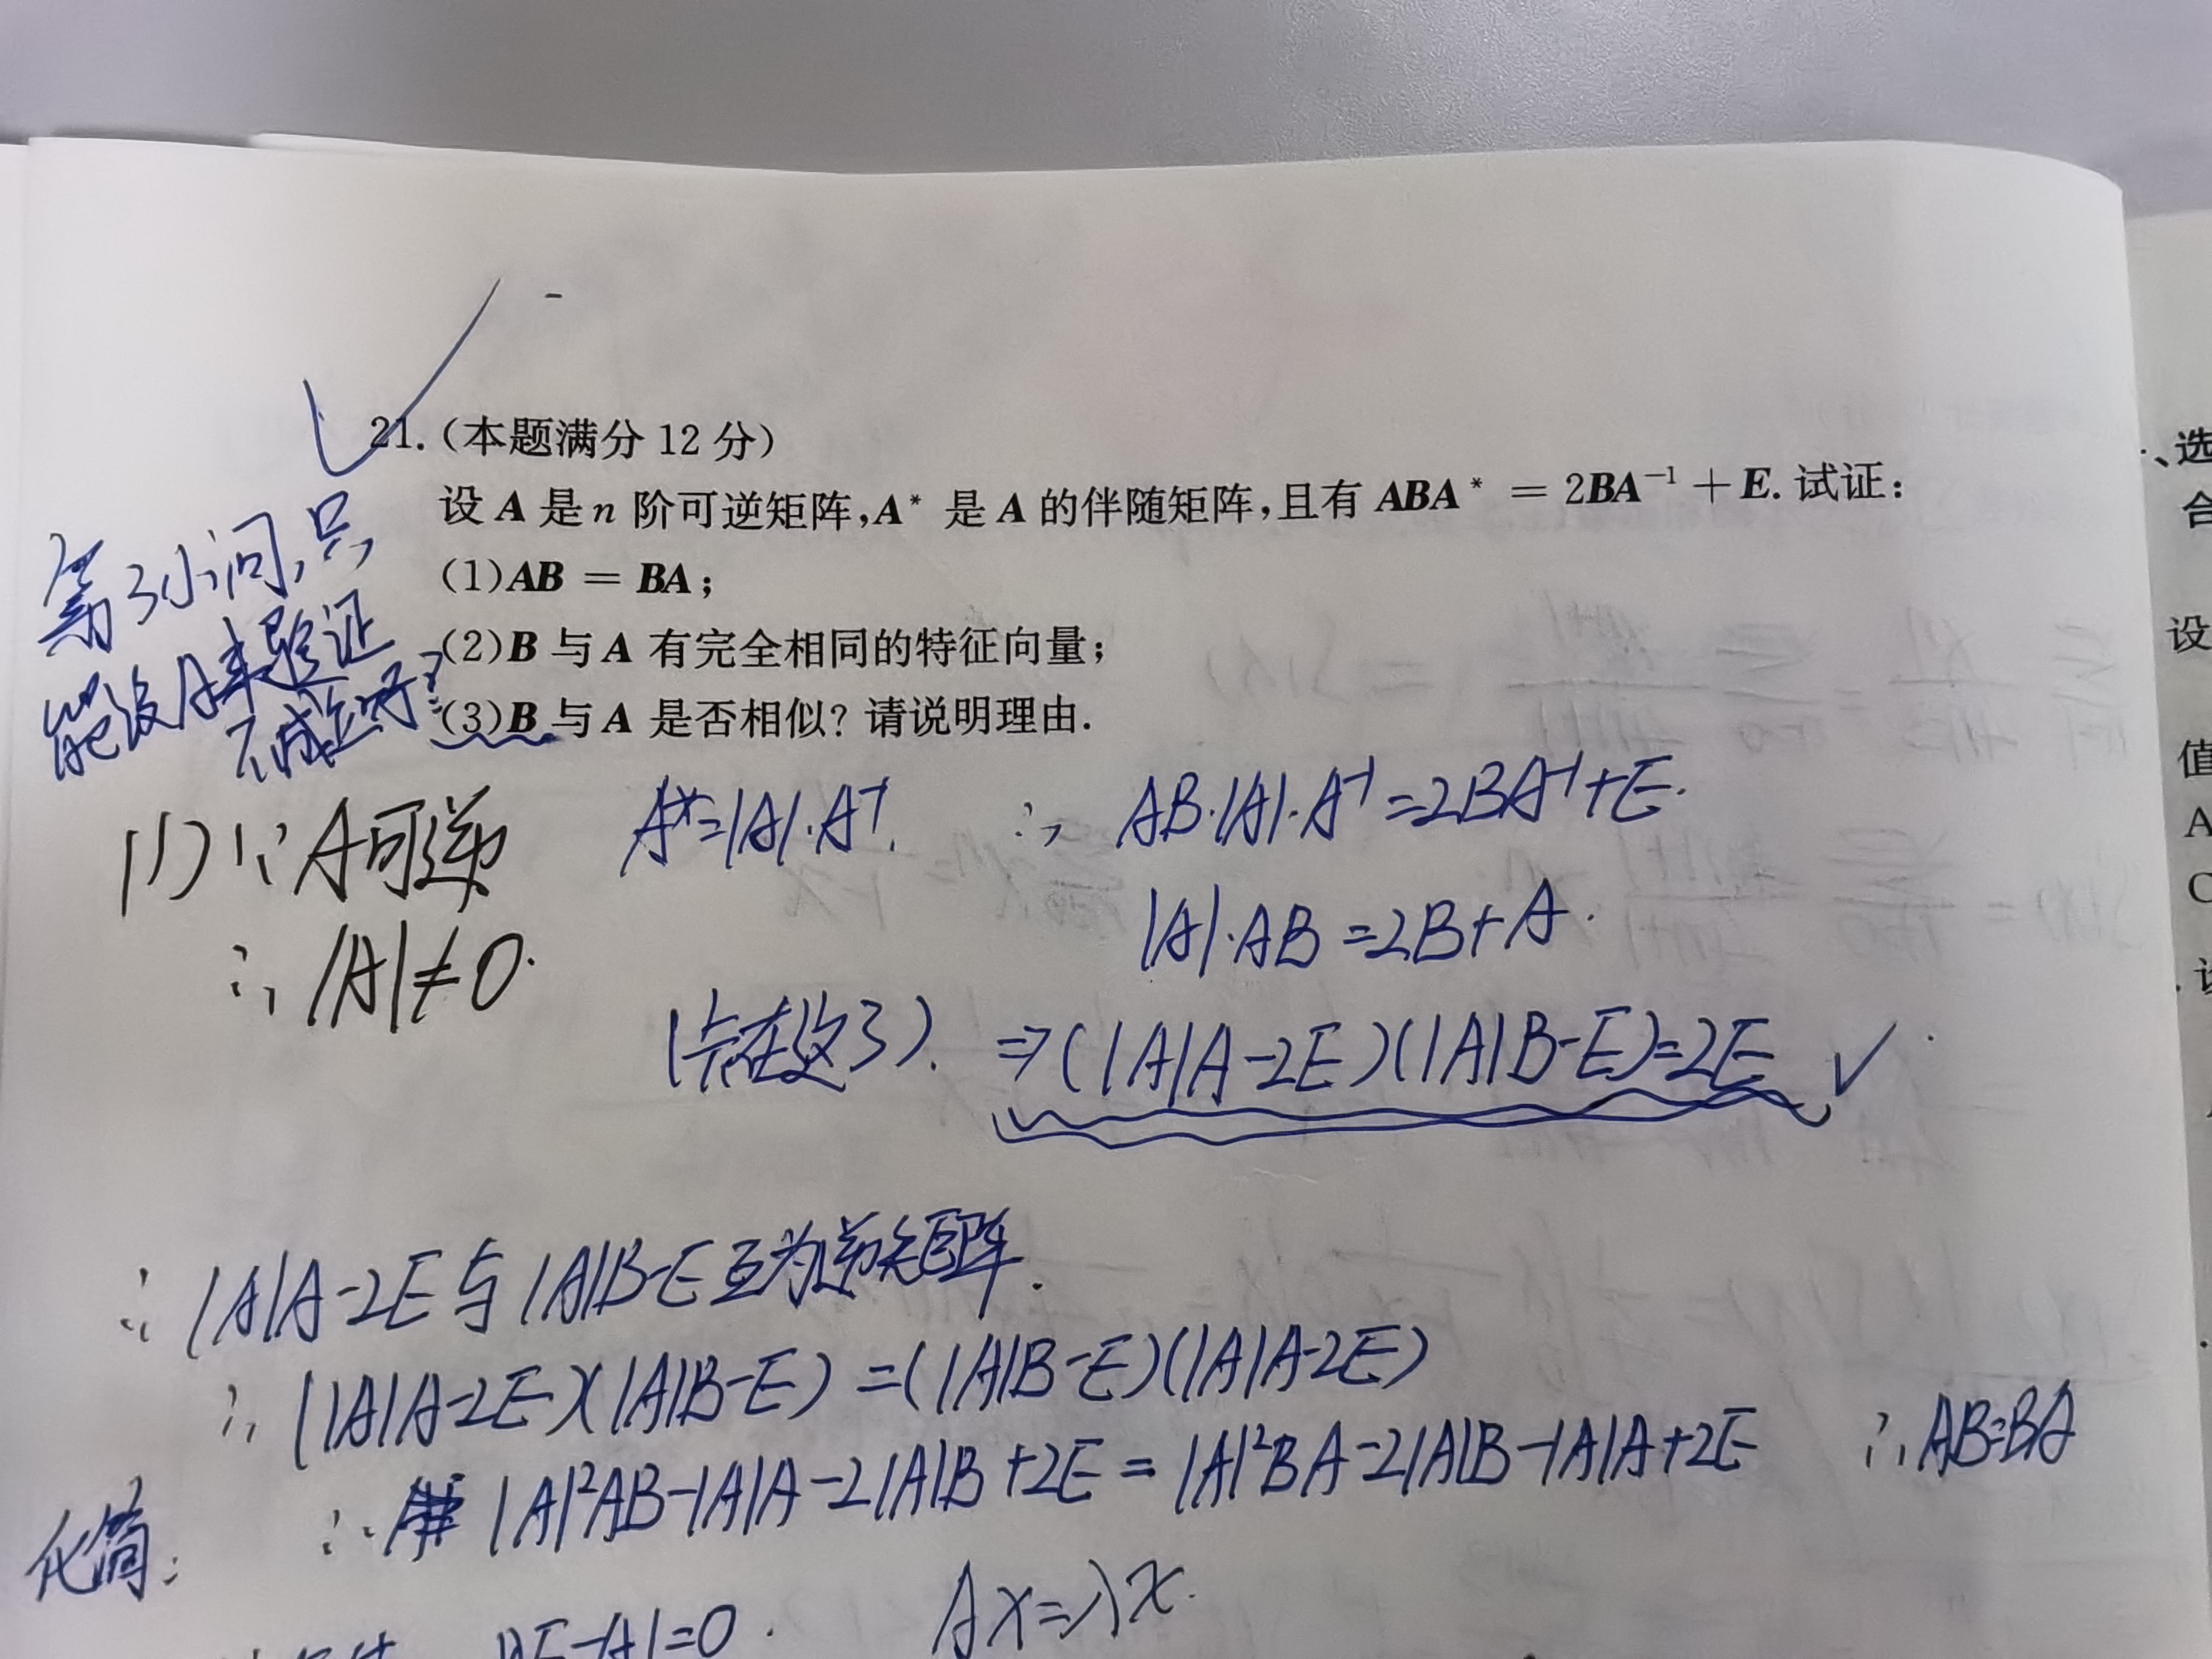 21.(本题满分 12 分)
设 A 是 n 阶可逆矩阵,A* 是 A 的伴随矩阵,且有 ABA* = 2BA⁻¹ + E. 试证:
(1)AB = BA;
(2)B 与 A 有完全相同的特征向量;
(3)B 与 A 是否相似? 请说明理由.
第3小问,只
能设A来验证
不成立呀?
(1) ∵ A可逆
∴ |A|≠0.
A*=|A|·A⁻¹. ∴ AB·|A|·A⁻¹=2BA⁻¹+E.
|A|·AB=2B+A.
(卡在这了). ⇒(|A|A-2E)(|A|B-E)=2E ✓
∴ |A|A-2E与|A|B-E互为逆矩阵.
∴ (|A|A-2E)(|A|B-E)=(|A|B-E)(|A|A-2E)
化简: ∴ |A|²AB-|A|A-2|A|B+2E=|A|²BA-2|A|B-|A|A+2E ∴ AB=BA
Ax=λx.
-A|=0.
、选
合
设
值
A
C